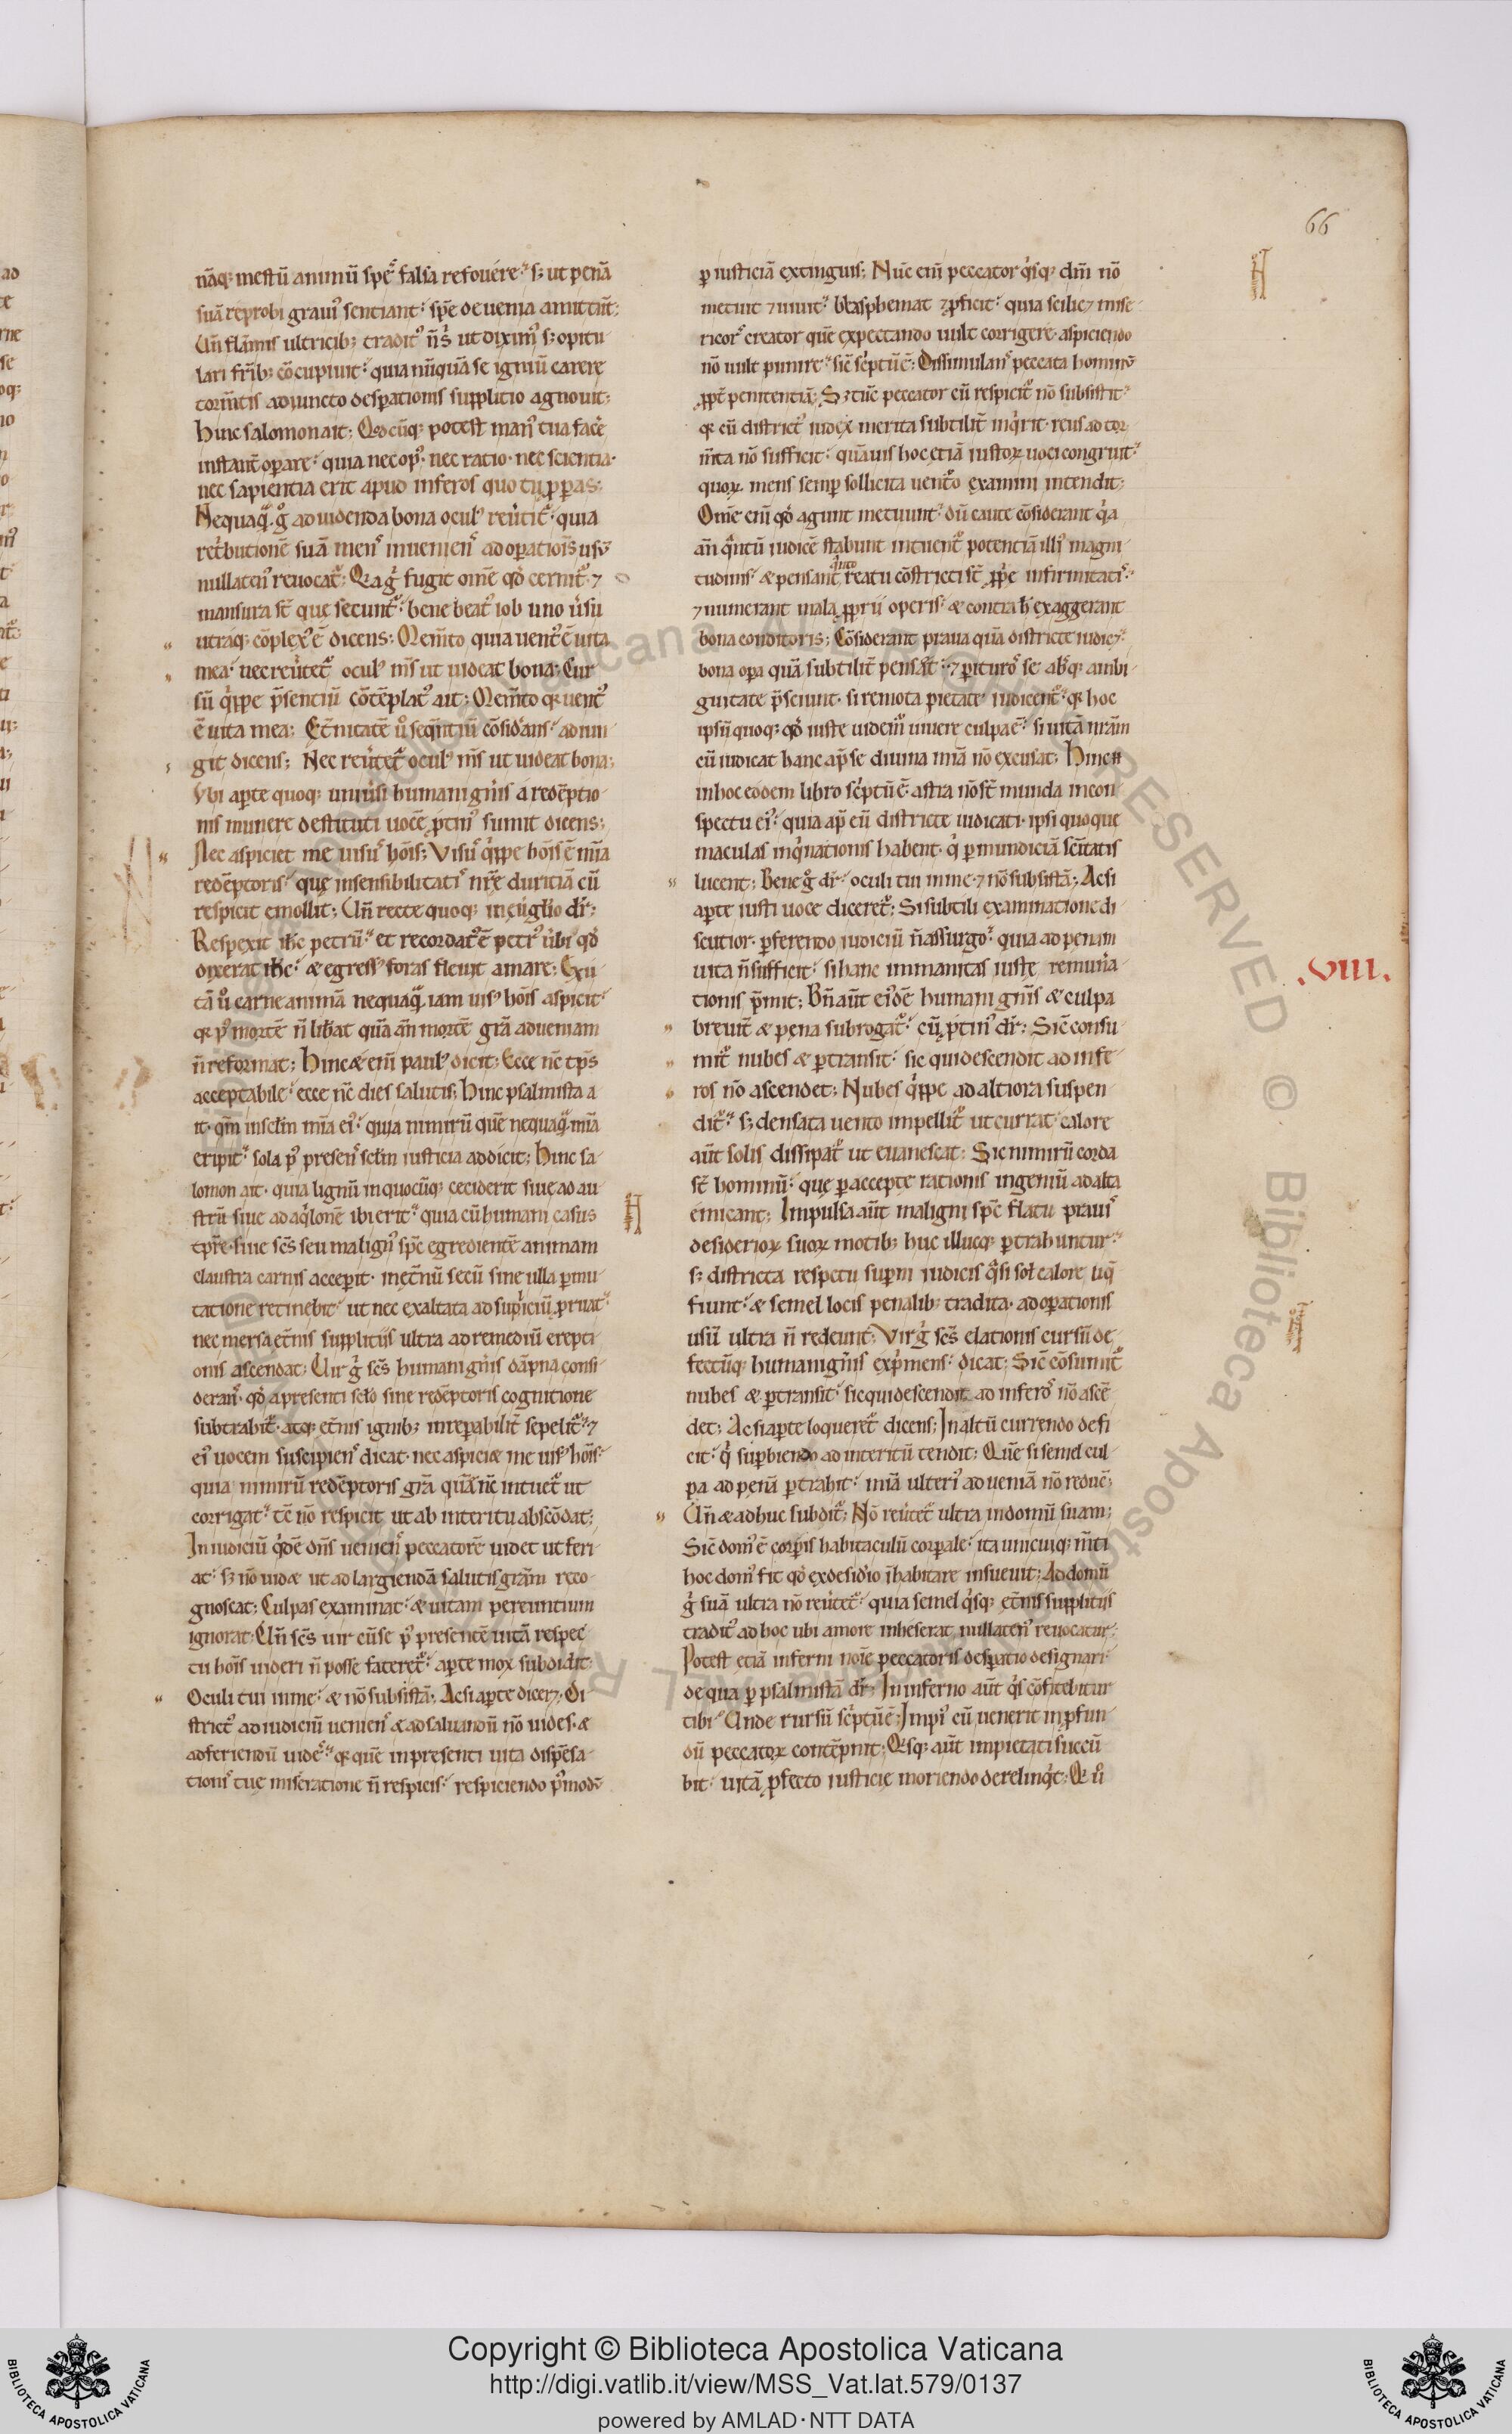 66
nāq; mestū animū spē falsa refouere. s; ut penā
suā reprobi graui' sentiant. spē de uenia amittūt;
Un̄ flāmis ultricib; tradit' n̄ s; ut dixim' s; opitu
lari fr̄ib; cōcupiuit. quia nūquā se igniū carere
torm̄tis adiuncto desperationis supplicio agnouit;
Hinc salomon ait; Qdcūq; potest man' tua facē
instant̄ operare. quia nec op'. nec ratio. nec scientia.
nec sapientia erit apud inferos quo tu pperas;
Nequaq̄. g° ad uidenda bona ocul' reutit̄. quia
ret'butionē suā mens inueniens ad operationis usū
nullaten' reuocat̄; Qa g' fugit om̄e qd cernit̄. ⁊
mansura st̄ que secunt̄. bene beat' iob uno ūsu
utraq; cōplex' ē dicens; Mem̄to quia uent' ē uita
mea. nec reūtet̄ ocul' m̄s ut uideat bona; Cur
sū q'ppe p̄sentiū cōtēplat' ait; Mem̄to q uent'
ē uita mea; Et̄nitatē u° seq̄ntiū cōsid'ans. adiun
git dicens; Nec reūtet̄ ocul' m̄s ut uideat bona;
Vbi aperte quoq; uniūsi humani gn̄is a redēptio
nis munere destituti uocē ptin' sumit dicens;
Nec aspiciet me uisus hōis; Visus q'ppe hōis ē mīa
redēptoris. que insensibilitatis nr̄e duriciā cū
respicit emollit; Un̄ recte quoq; in euglio dr̄;
Respexit ih̄c petrū. et recordat' ē petr' ūbi qd
dixerat ih̄c. & egress' foras fleuit amare; Exu
tā u° carne animā nequaq̄. iam uis' hōis aspicit.
q p' mortē n̄ lib̄at quā an̄ mortē gr̄a ad ueniam
n̄ reformat; Hinc & eni paul' dicit; Ecce nc̄ tp̄s
acceptabile. ecce nc̄ dies salutis; Hinc psalmista a
it. qm̄ in scl̄m mīa ei'. quia nimirū quē nequaq̄. mīa
eripit. sola p' presens scl̄m iusticia addicit; Hinc sa
lomon ait. quia lignū in quocūq; ceciderit siue ad au
strū siue ad aq'lonē ibi erit. quia cū humani casus
tp̄re. siue scs̄ seu malign' sp̄c egredientē animam
claustra carnis acceperit. in et̄nū secū sine ulla permu
tatione retinebit. ut nec exaltata ad supliciū pruat.
nec mersa et̄nis suppliciis ultra ad remediū erepti
onis ascendat; Uir g' scs̄ humani gn̄is dāpna consi
derans. qd a presenti sclo sine redēptoris cognitione
subtrahit̄. atq; et̄nis ignib; inreparabilit̄ sepelit̄. ⁊
ei' uocem suscipiens dicat. nec aspici& me uis' hōis.
quia nimirū redēptoris gr̄a quā nc̄ intuet̄ ut
corrigat. tc̄ nō respicit ut ab interitu abscōdat;
In iudiciū q'dē dn̄s ueniens peccatorē uidet ut feri
at. s; nō uid& ut ad largiendā salutis gr̄am reco
gnoscat; Culpas examinat. & uitam pereuntium
ignorat. Un̄ scs̄ uir cū se p' presentē uitā respec
tu hōis uideri n̄ posse fateret̄. aperte mox subdidit;
Oculi tui in me. & nō subsistā; Ac si aperte dicer&. Di
strict' ad iudiciū ueniens & ad saluandū nō uides. &
ad feriendū uides. q quē in presenti uita dispēsa
tionis tue miseratione n̄ respicis. respiciendo p'modū
per iusticiā extinguis; Nūc eni peccator q'sq; dm̄ nō
metuit ⁊ uiuit. blasphemat ⁊ pficit. quia scilic& mise
ricors creator quē expectando uult corrigere. aspiciendo
nō uult punire. sic sc'ptū ē; Dissimulans peccata hominū
ppt̄ penitentiā; S; tūc peccator cū respicit̄ nō subsistit.
q cū district' iudex merita subtilit̄ inq'rit. reus ad tor
m̄ta nō sufficit. quāuis hoc etiā iustor; uoci congruit.
quor; mens semper sollicita uent°o examini intendit;
Om̄e eni qd agunt metuunt. dū caute cōsiderant q'a
an̄ q̄ntū iudicē stabunt intuent̄ potentiā illi' magni
tudinis. & pensant quanto reatu cōstricti st̄ pp̄e infirmitatis.
⁊ numerant mala pprii operis. & contra h' exaggerant
bona conditoris; Cōsiderant praua quā districte iudic&.
bona opera quā subtilit̄ penset. ⁊ perituros se absq; ambi
guitate p̄sciunt. si remota pietate iudicent̄. q hoc
ipsū quoq; qd iuste uidem̄ uiuere culpa ē. si uitā nr̄am
cū iudicat hanc ap se diuina mīa nō excusat. Hinc n̄
in hoc eodem libro sc'ptū ē. astra nō st̄ munda in con
spectu ei'. quia ap̄ eū districte iudicati. ipsi quoque
maculas inq'nationis habent. q' per mundiciā scītatis
lucent; Bene g° dr̄. oculi tui in me. ⁊ nō subsistā; Ac si
aperte iusti uoce diceret̄; Si subtili examinatione di
scutior. perferendo iudiciū n̄ assurgo. quia ad penam
uita n̄ sufficit. si hanc immanitas iuste remuna
.VIII.
tionis p̄mit; Bn̄ aūt ei'dē humani gn̄is & culpa
breuit̄ & pena subrogat̄. cū ptin' dr̄; Sic consu
mit̄ nubes & pertransit. sic qui descendit ad infe
ros nō ascendet; Nubes q'ppe ad altiora suspen
dit̄. s; densata uento impellit̄ ut currat. calore
aūt solis dissipat̄ ut euanescat; Sic nimirū corda
st̄ hominū. que per accepte rationis ingeniū ad alta
emicant; Impulsa aūt maligni sp̄c flatu prauis
desiderior; suor; motib; huc illucq; pertrahuntur.
s; districta respectu superni iudicis q̄si sol' calore liq̄
fiunt. & semel locis penalib; tradita. ad operationis
usū ultra n̄ redeunt; Vir g' scs̄ elationis cursū de
fectūq; humani gn̄is exp'mens. dicat; Sic cōsumit̄
nubes & pertransit. sic qui descendit ad inferos nō ascē
det; Ac si aperte loqueret̄ dicens; In altū currendo defi
cit. q' superbiendo ad interitū tendit; Quē si semel cul
pa ad penā pertrahit. mīa ulteri' ad ueniā nō reducē;
Un̄ & adhuc subdit̄; Nō reūtet̄ ultra in domū suam;
Sic dom' ē corpis habitaculū corpale. ita unicuiq; m̄ti
hoc dom' fit qd ex desid'io inhabitare insueuit; Ad domū
g' suā ultra nō reūtet̄. quia semel q'sq; et̄nis suppliciis
tradit' ad hoc ubi amore inheserat nullaten' reuocatur;
Potest etiā inferni noīe peccatoris desperatio designari.
de qua per psalmistā dr̄; In inferno aūt q's cōfitebitur
tibi. Unde rursū sc'ptū ē; Impi' cū uenerit in pfun
dū peccator; contēpnit; Qsq; aūt impietati succū
bit. uitā pfecto iusticie moriendo derelinq't; Q' u°
Copyright © Biblioteca Apostolica Vaticana
http://digi.vatlib.it/view/MSS_Vat.lat.579/0137
powered by AMLAD·NTT DATA
BIBLIOTECA APOSTOLICA VATICANA
BIBLIOTECA APOSTOLICA VATICANA